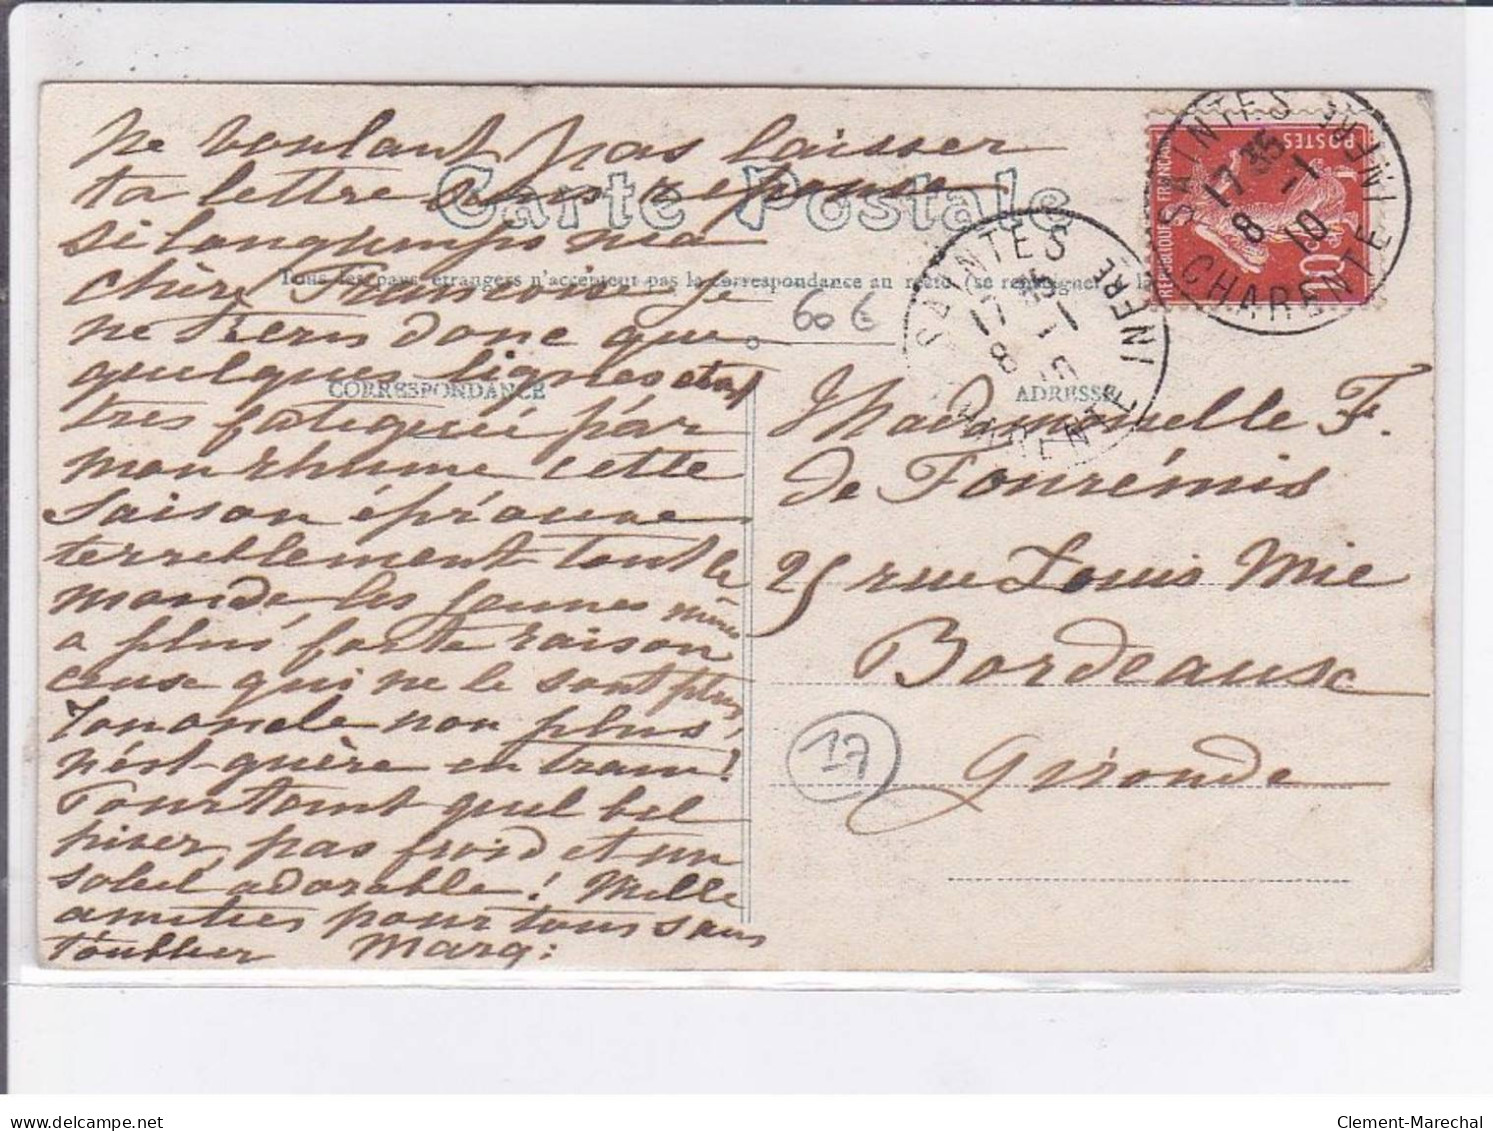 Ne voulant pas laisser
ta lettre sans réponse
si longtemps ma
chère Françoise je
ne ferais donc que
quelques lignes
très fatiguée par
mon rhume cette
saison éprouve
terreblement tout le
monde, les jeunes même
a plus forte raison
ceux qui ne le sont plus
non plus,
n'est guère en train!
Pourtant quel bel
hiver, pas froid et un
soleil adorable! Mille
amitiés pour tous sans
t'oublier Marg:
Carte Postale
Tous les pays étrangers n'acceptent pas la correspondance au recto (se renseigner à la
60 €
CORRESPONDANCE
ADRESSE
SAINTES
17 35
8 -1
10
CHARENTE INFRE
SAINTES
17 35
8 -1
10
CHARENTE INFERE
REPUBLIQUE FRANCAISE
POSTES
Mademoiselle F.
de Fourémis
25 rue Louis Mie
Bordeaux
Gironde
17
delcampe.net
Clement-Marechal